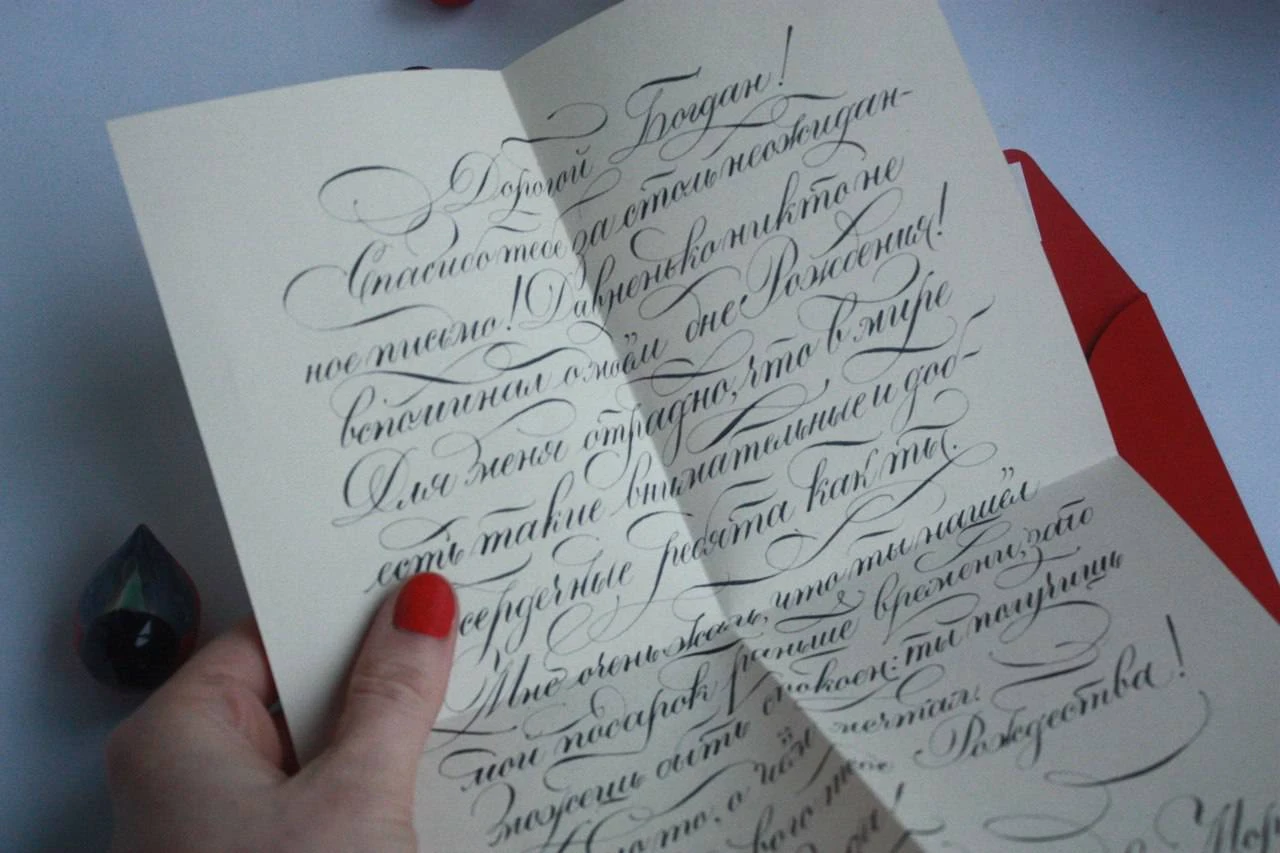 Дорогой Богдан!
Спасибо тебе за столь неожидан-
ное письмо! Давненько никто не
вспоминал о моём дне Рождения!
Для меня отрадно, что в мире
есть такие внимательные и доб-
сердечные ребята как ты.
Мне очень жаль, что ты нашёл
мой подарок раньше времени, зато
можешь быть спокоен: ты получишь
то, о чём мечтал.
тебе Рождества!